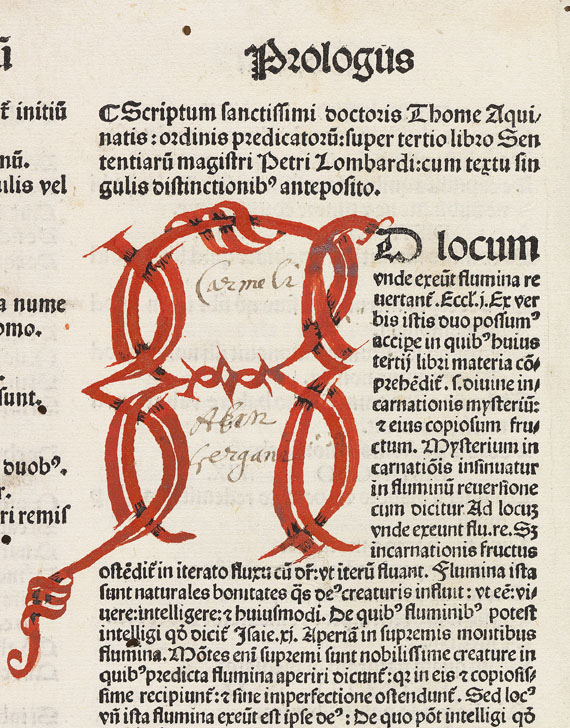 ū
Prologus
 ꝉ initiū
nū.
ulis vel
a nume
omo.
sunt.
duobꝰ.
r.
ri remis
ꞆScriptum sanctissimi doctoris Thome Aqui-
natis: ordinis predicatorū: super tertio libro Sen
tentiarū magistri Petri Lombardi: cum textu sin
gulis distinctionibꝰ anteposito.
A
D locum
vnde exeūt flumina re
uertant̄. Eccl'.j. Ex ver
bis istis duo possumꝰ
accipe in quibꝰ huius
tertij libri materia cō-
prehēdit̄. s. diuine in-
carnationis mysteriū:
⁊ eius copiosum fru-
ctum. Mysterium in
carnatiōis insinuatur
in fluminū reuersione
cum dicitur Ad locuȝ
vnde exeunt flu. re. Sȝ
incarnationis fructus
ostēdit̄ in iterato fluxu cū dr̄: vt iterū fluant. Flumina ista
sunt naturales bonitates q̄s deꝰ creaturis influit: vt eē: vi-
uere: intelligere: ⁊ huiusmodi. De quibꝰ fluminibꝰ potest
intelligi qđ dicit̄ Isaie. xj. Aperiā in supremis montibus
flumina. Mōtes eni supremi sunt nobilissime creature in
quibꝰ predicta flumina aperiri dicunt̄: qꝛ in eis ⁊ copiosis-
sime recipiunt̄: ⁊ sine imperfectione ostendunt̄. Sed locꝰ
vn̄ ista flumina exeūt est ipse deꝰ: De quo pōt intelligi qđ
Carmeli